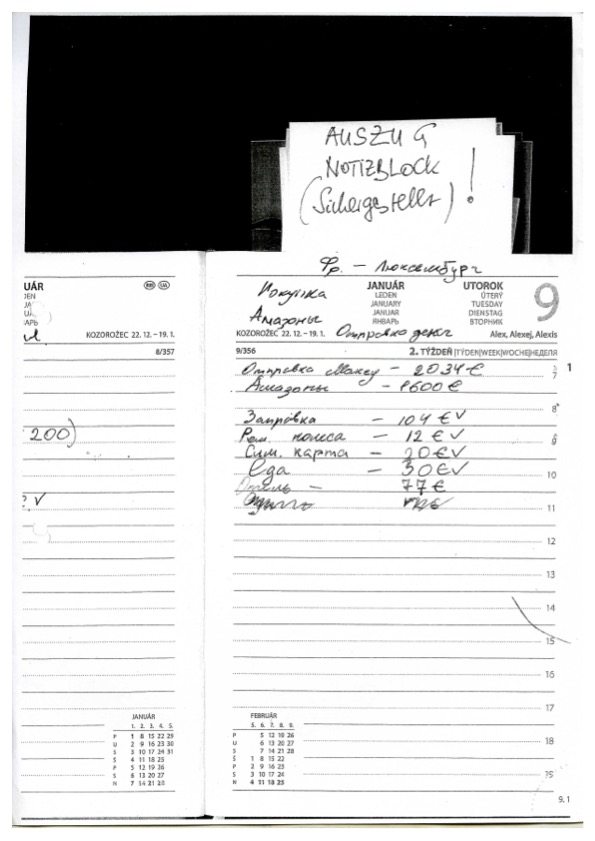 AUSZUG
NOTIZBLOCK
(Sichergestellt) !
Фр. - Люксембург
Покупка
Амазоны
Отправка денег
UÁR
DEN
JA
KOZOROŽEC 22. 12. – 19. 1.
8/357
200)
JANUÁR
LEDEN
JANUARY
JANUAR
ЯНВАРЬ
UTOROK
ÚTERÝ
TUESDAY
DIENSTAG
ВТОРНИК
9
KOZOROŽEC 22. 12. – 19. 1.
Alex, Alexej, Alexis
9/356
2. TÝŽDEŇ |TÝDEN|WEEK|WOCHE|НЕДЕЛЯ
1
Отправка Максу - 2034 €
7
Амазоны - 1600 €
8
Заправка - 104 € ✓
Рем. колеса - 12 € ✓
9
Сим. карта - 20 € ✓
Еда - 30 € ✓
10
Отель - 77 €
11
12
13
14
15
16
17
18
JANUÁR
1. 2. 3. 4. 5.
P 1 8 15 22 29
U 2 9 16 23 30
S 3 10 17 24 31
Š 4 11 18 25
P 5 12 19 26
S 6 13 20 27
N 7 14 21 28
FEBRUÁR
5. 6. 7. 8. 9.
P 5 12 19 26
U 6 13 20 27
S 7 14 21 28
Š 1 8 15 22
P 2 9 16 23
S 3 10 17 24
N 4 11 18 25
9. 1